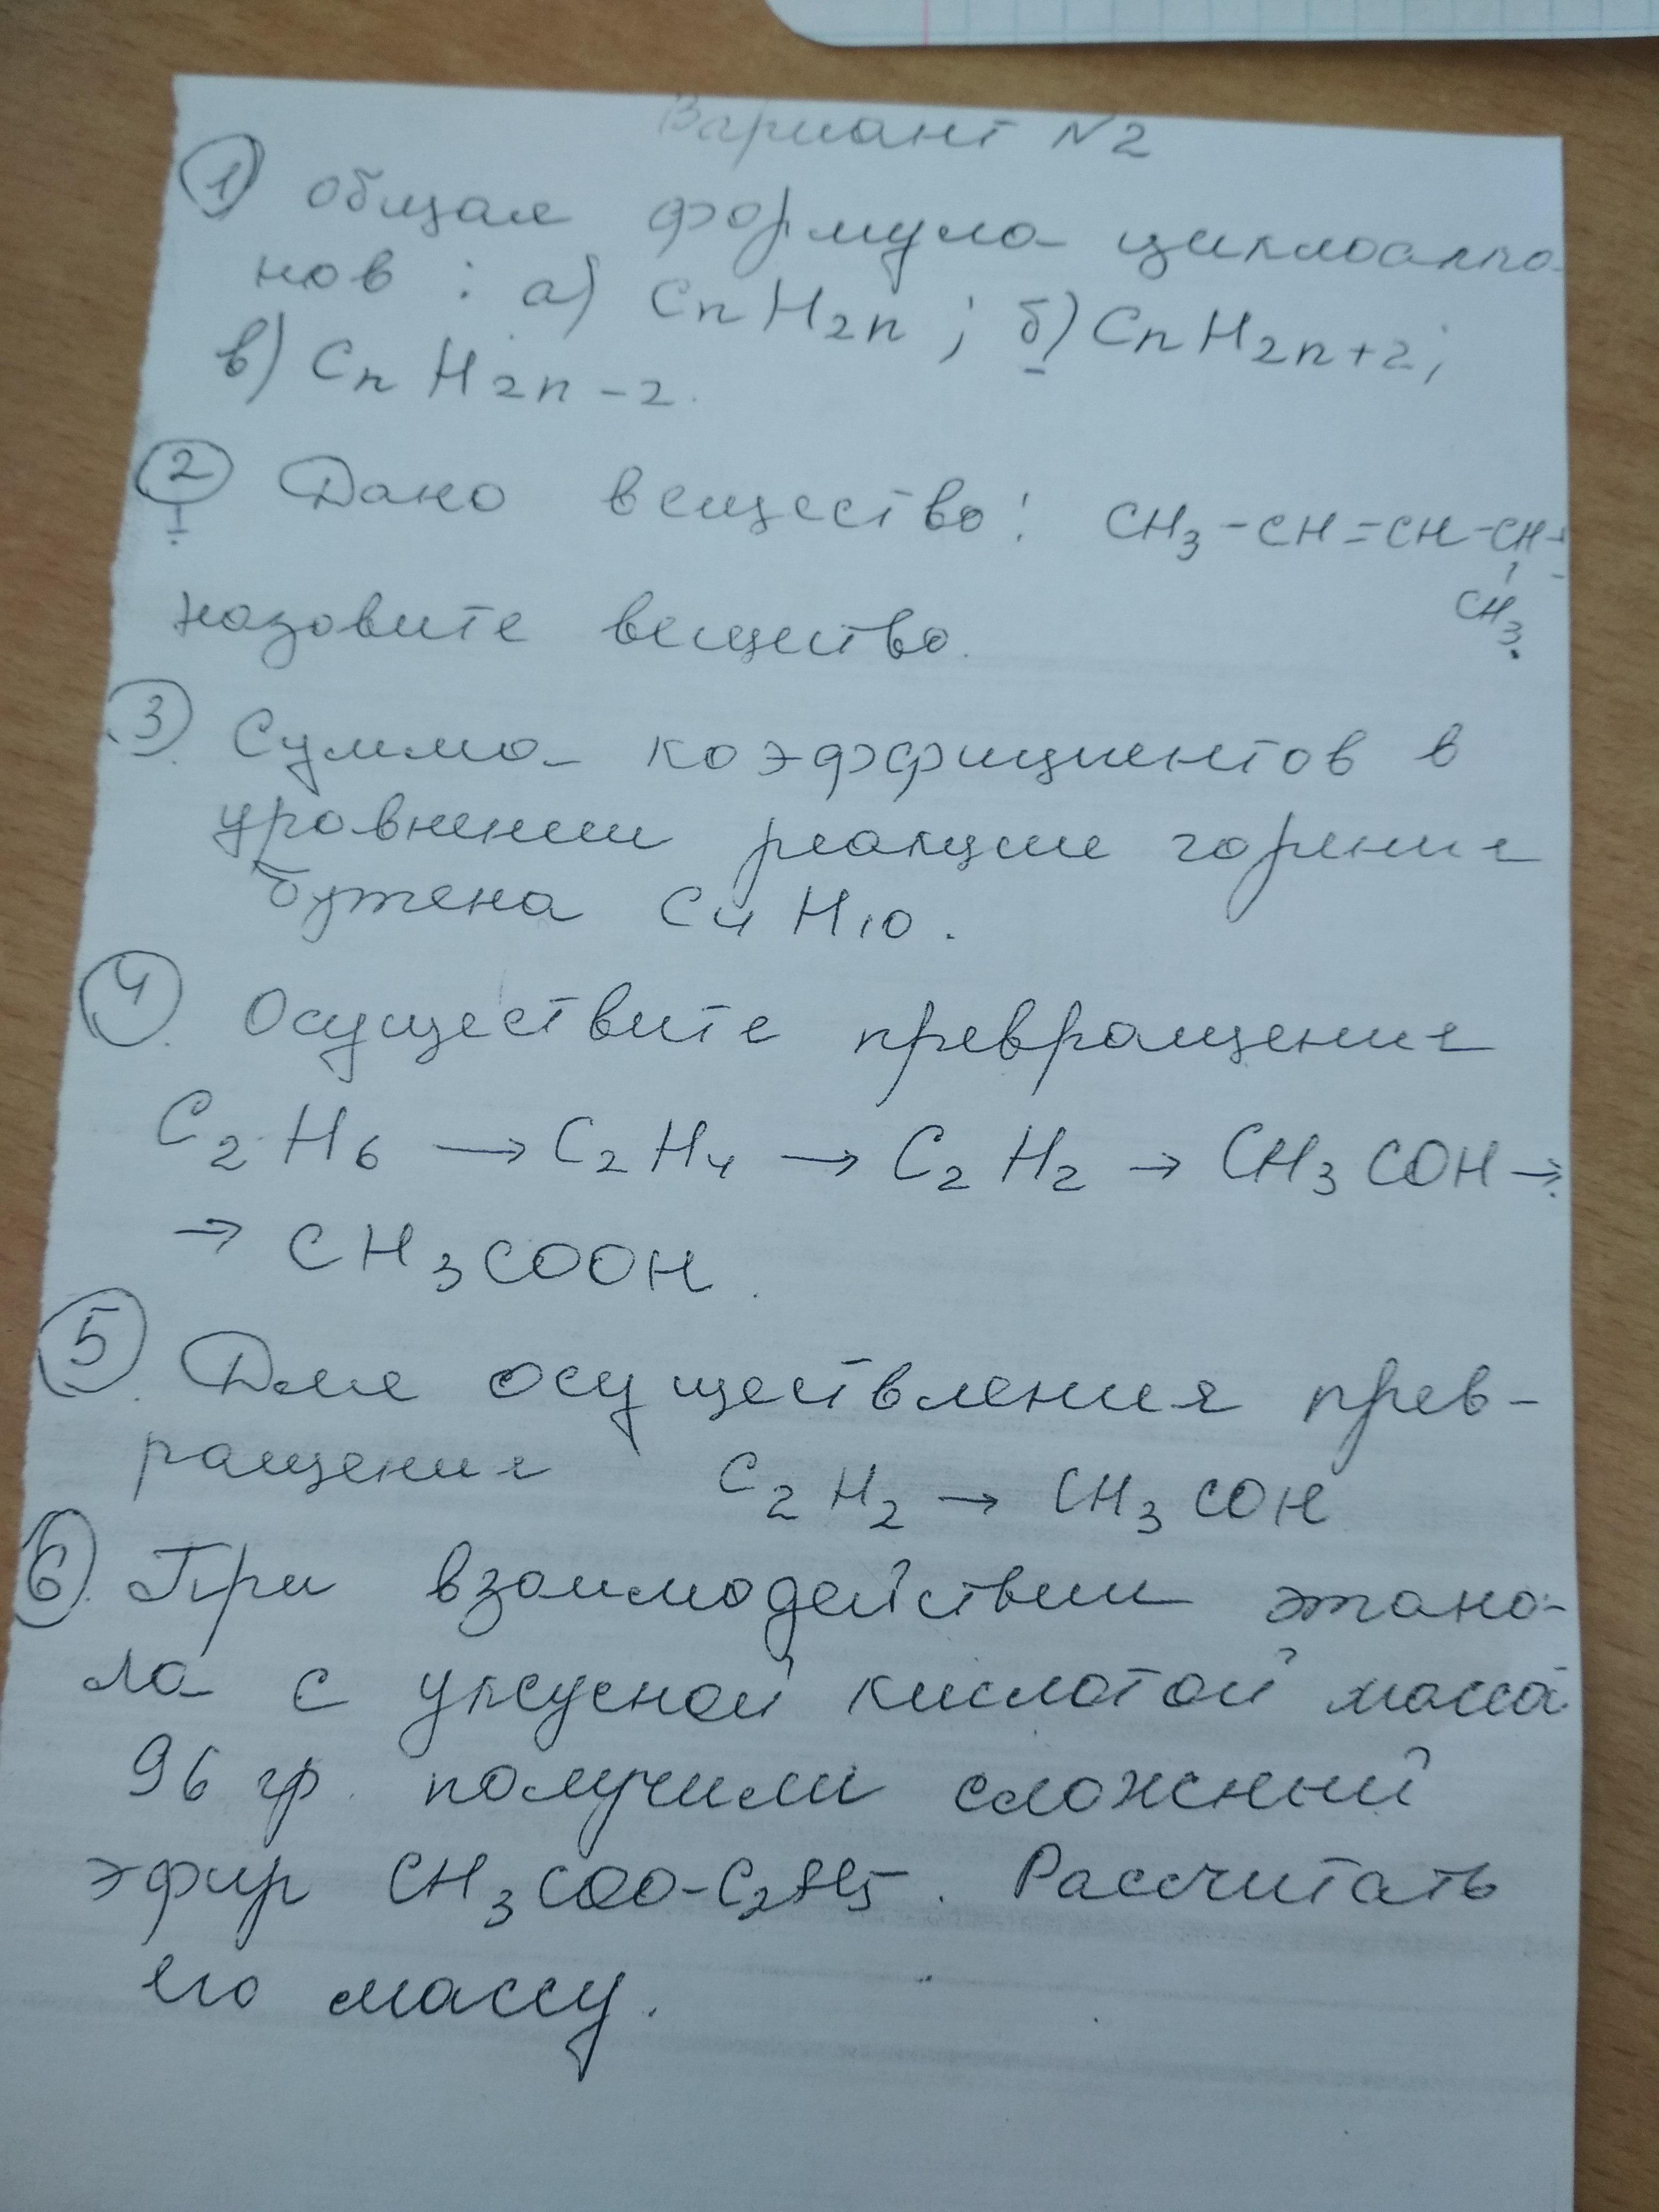 Вариант N2
① общая формула циклоалка-
нов : а) CnH2n ; б) CnH2n+2;
в) CnH2n-2.
② Дано вещество: CH3-CH=CH-CH-
CH3.
назовите вещество.
③. Сумма коэффициентов в
уровнении реакции горения
бутена C4H10.
④. Осуществите превращение
C2H6 → C2H4 → C2H2 → CH3COH →
→ CH3COOH.
⑤. Для осуществления прев-
ращения C2H2 → CH3COH
⑥. При взаимодействии этано-
ла с уксусной кислотой масса
96 гр. получили сложный
эфир CH3COO-C2H5. Рассчитать
его массу.